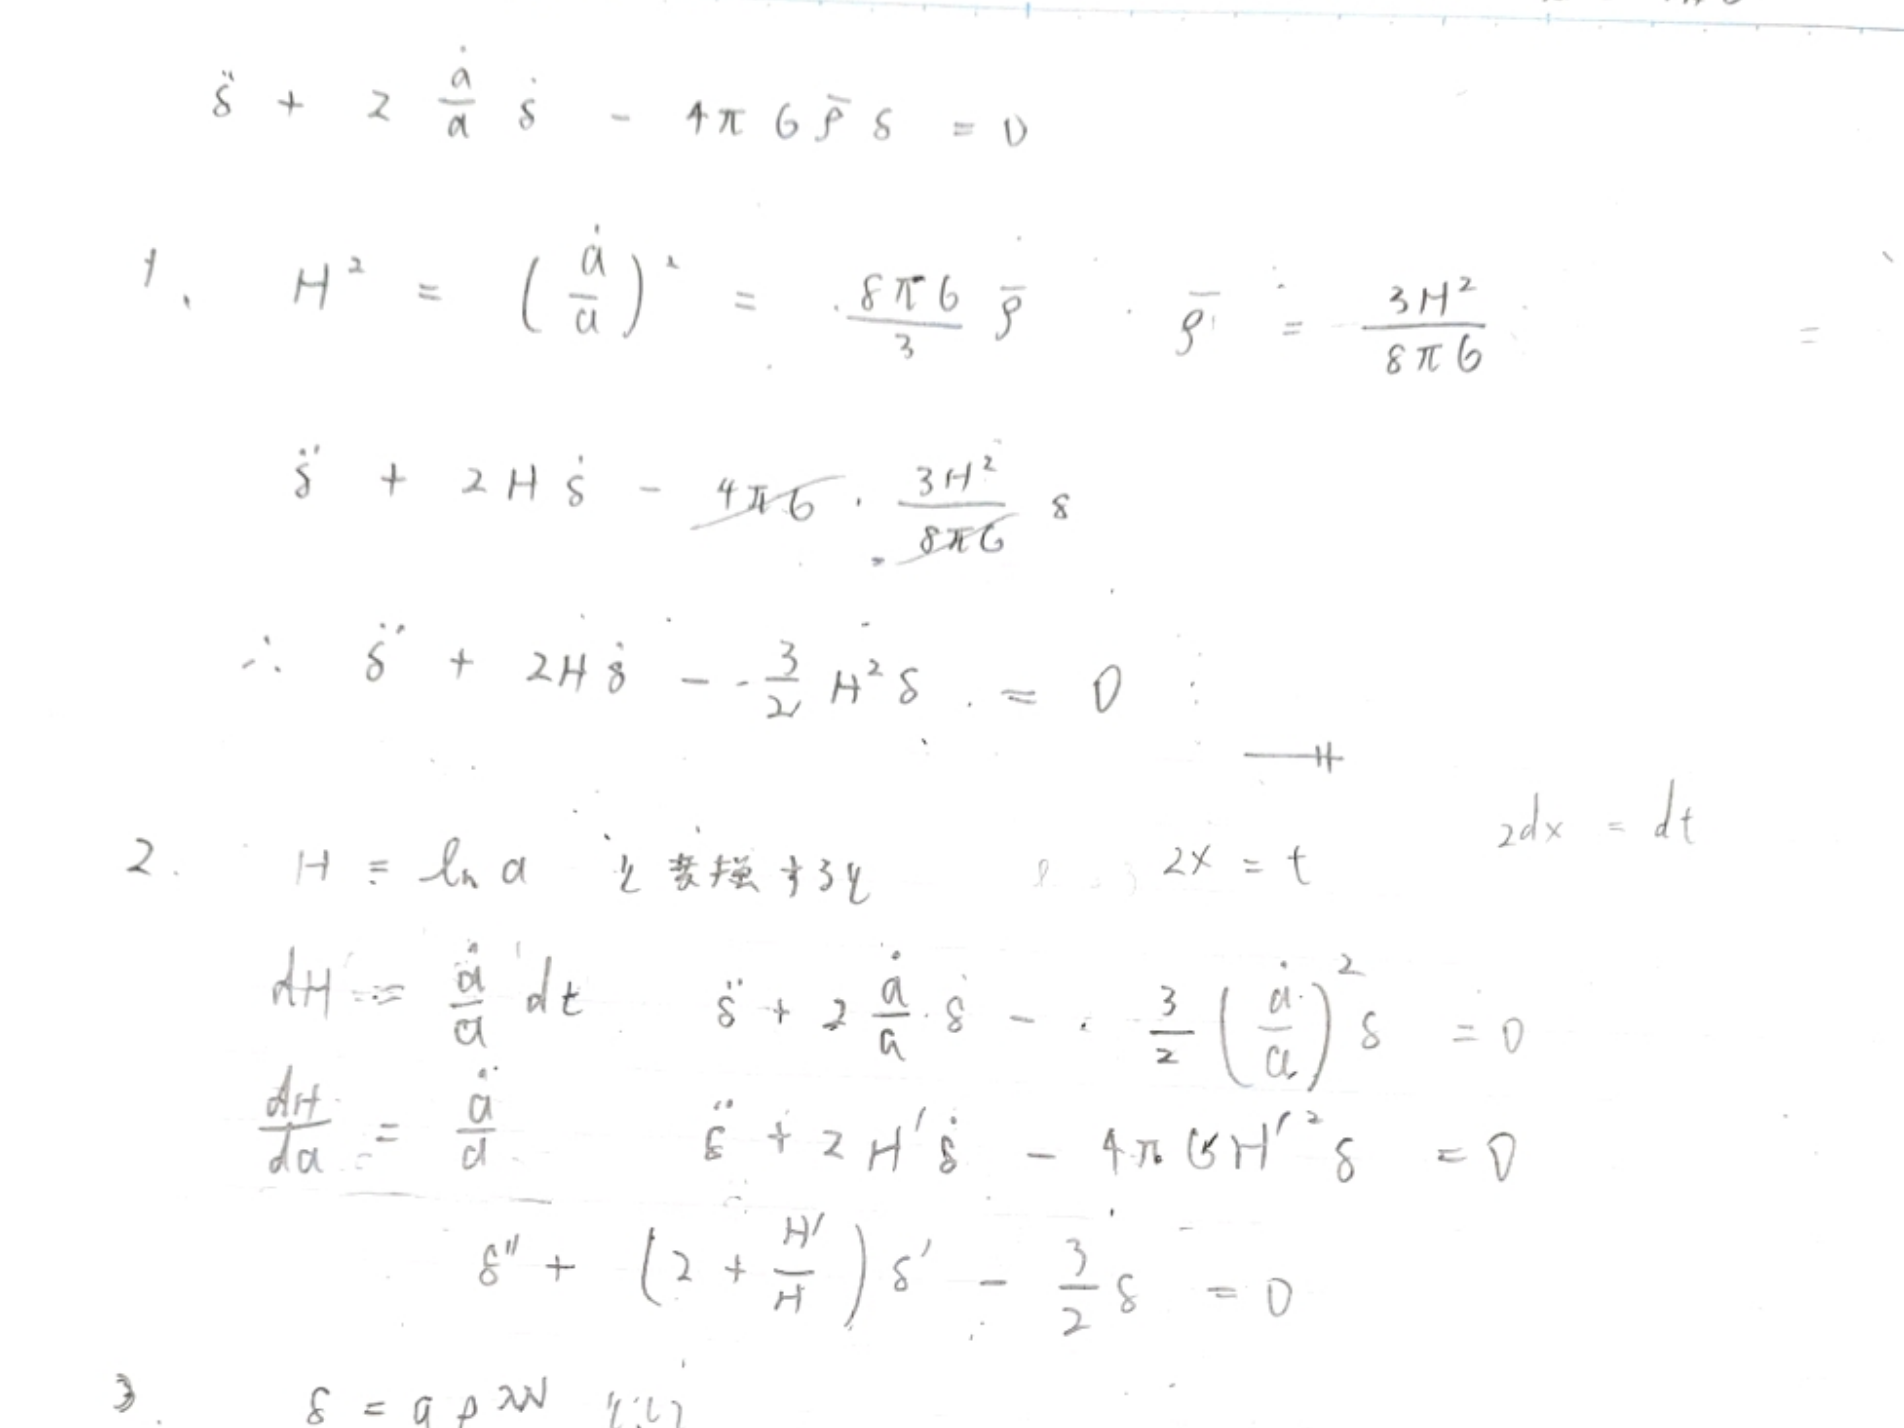 δ̈ + 2 ȧ/a δ̇ - 4πG ρ̄ δ = 0
1. H² = (ȧ/a)² = 8πG/3 ρ̄ ρ̄ = 3H²/8πG
δ̈ + 2Hδ̇ - 4πG · 3H²/8πG δ
∴ δ̈ + 2Hδ̇ - 3/2 H²δ = 0
2dx = dt
2. H = ln a と変換すると 2x = t
dH = ȧ/a dt δ̈ + 2 ȧ/a · δ̇ - 3/2 (ȧ/a)² δ = 0
dH/da = ȧ/a δ̈ + 2H'δ̇ - 4πGH'²δ = 0
δ'' + (2 + H'/H) δ' - 3/2 δ = 0
3. δ = a e^λN